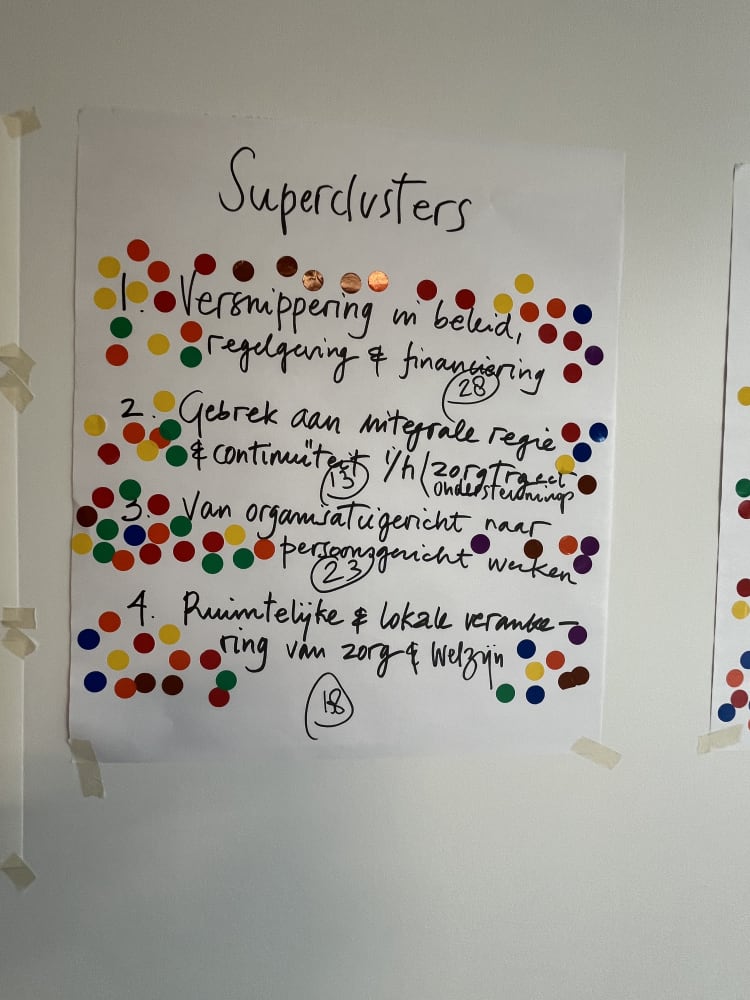 Superclusters
1. Versnippering in beleid,
regelgeving & financiering
28
2. Gebrek aan integrale regie
& continuïteit i/h / zorgtraject
ondersteunings
13
3. Van organisatiegericht naar
persoonsgericht werken
23
4. Ruimtelijke & lokale veranke-
ring van zorg & welzijn
18